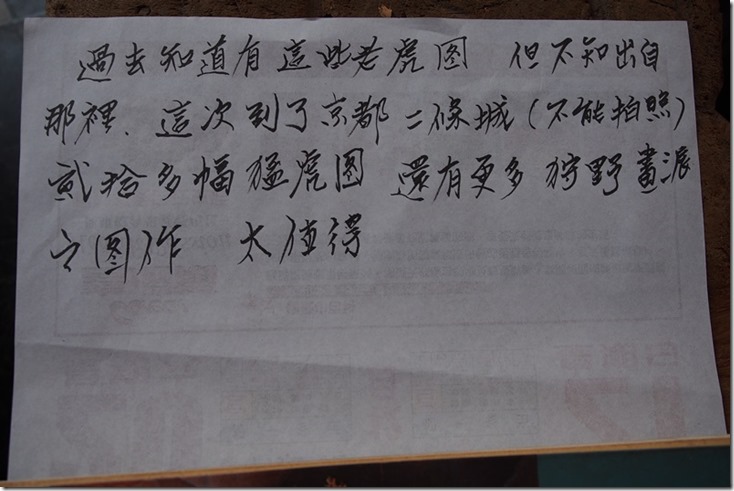 過去知道有這些老虎图 但不知出自
那裡、這次到了京都二條城(不能拍照)
貳拾多幅猛虎图 還有更多狩野畫派
之图作 太值得